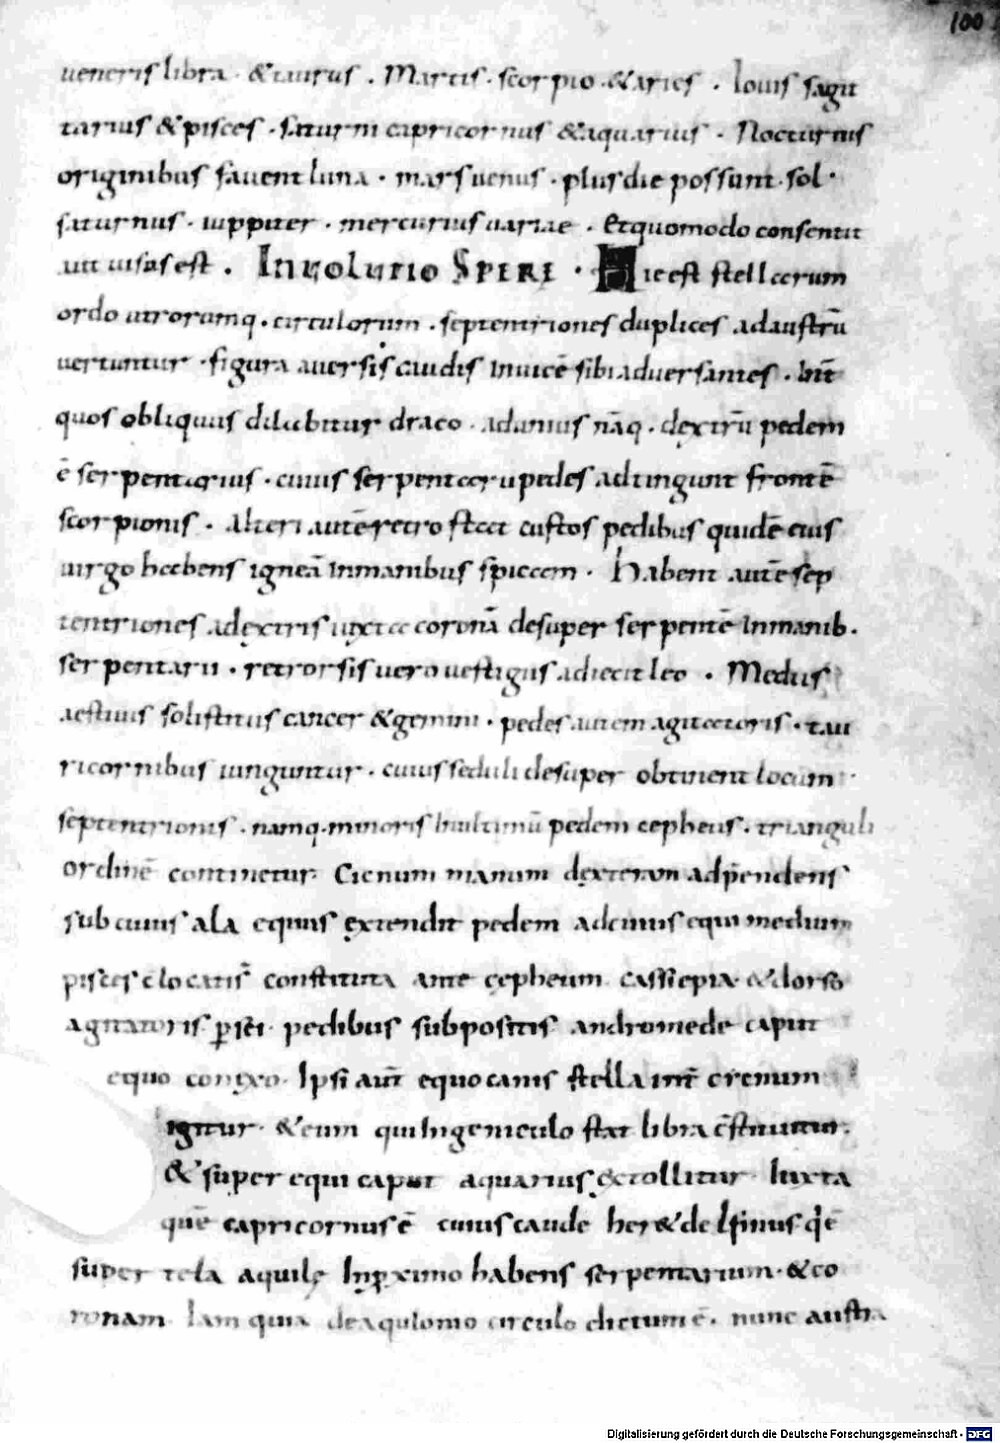 100
ueneris libra · & taurus . Martis · scorpio · & aries . Iouis sagit
tarius & pisces · saturni capricornus & aquarius · Nocturnis
originibus fauent luna · mars uenus · plus die possunt · sol ·
saturnus · iuppiter · mercurius uariae · Et quomodo consentit
uti uisus est . INUOLUTIO SPERE · Hic est stellarum
ordo utrorumq · circulorum · septemtriones duplices ad austrū
uertuntur · figura auersis caudis inuicē sibi aduersantes · Int̄
quos obliquus dilabitur draco · ad unius nāq · dextrū pedem
ē serpentarius · cuius serpentarii pedes adtingunt frontē
scorpionis · alteri autē retro stat custos pedibus quidē eius
uirgo habens igneā in manibus spicam · Habent autē sep
tentriones a dextris iuxta coronā desuper serpentē in manib ·
serpentarii · retrorsis uero uestigiis adiecit leo · Medius
aestiuis solistitiis cancer & gemini · pedes autem agitatoris · tau
ri cornibus iunguntur · cuius seduli desuper obtinent locum ·
septentrionis · namq · minoris in ultimū pedem cepheus · trianguli
ordinē continetur · Cicnum manum dexteram adp̄endens
sub cuius ala equus extendit pedem ad cuius equi medium
pisces elocatis constituta ante cepheum cassiepia & dorso
agitatoris psei pedibus subpositis andromede caput
equo conixo · Ipsi aūt equo canis stella int̄ cicnum
igitur · & eum qui ingeniculo stat libra c̄stituitur ·
& super equi caput aquarius extollitur · Iuxta
quē capricornus ē cuius caude heret & delfinus q̄ ē
super tela aquile In pximo habens serpentarium · & co
ronam Iam quia de aquilonio circulo dictum ē · nunc austra
Digitalisierung gefördert durch die Deutsche Forschungsgemeinschaft - DFG